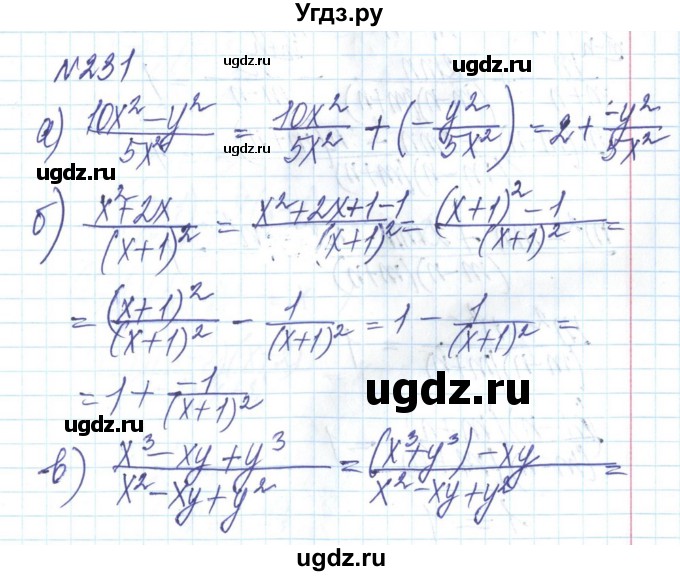 Угдз.ру
№231
ugdz.ru ugdz.ru
а) (10x² − y²)/(5x²) = 10x²/(5x²) + (−y²/(5x²)) = 2 + (−y²)/(5x²)
ugdz.ru ugdz.ru
б) (x² + 2x)/(x+1)² = (x² + 2x + 1 − 1)/(x+1)² = ((x+1)² − 1)/(x+1)² =
= (x+1)²/(x+1)² − 1/(x+1)² = 1 − 1/(x+1)² =
= 1 + (−1)/(x+1)²
ugdz.ru ugdz.ru
в) (x³ − xy + y³)/(x² − xy + y²) = ((x³ + y³) − xy)/(x² − xy + y²) =
ugdz.ru